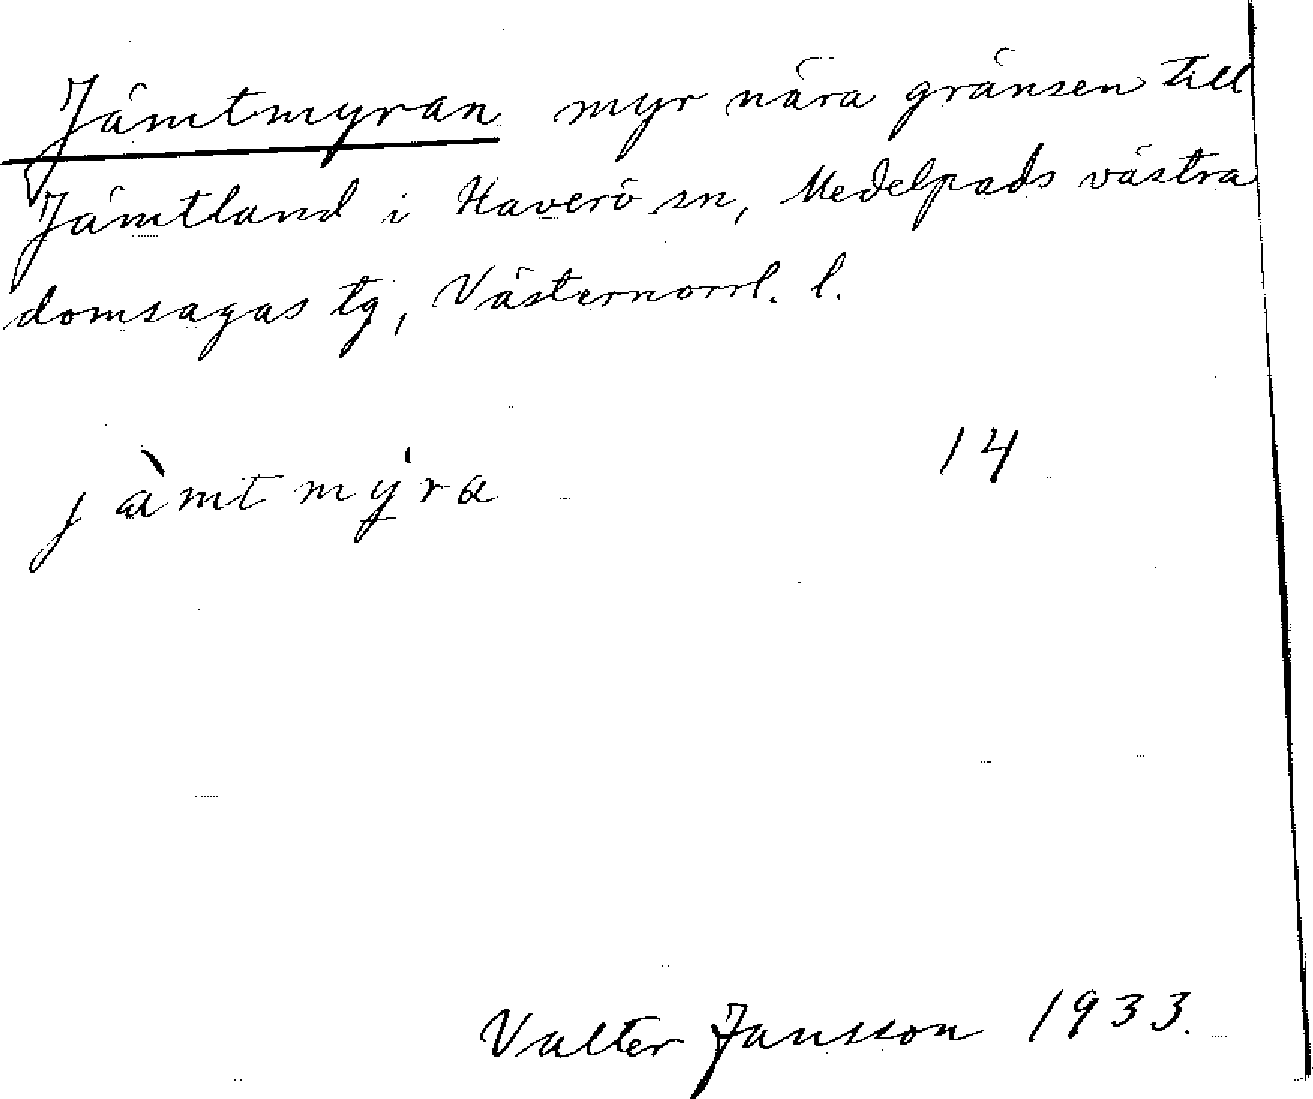 Jämtmyran myr nära gränsen till
Jämtland i Haverö sn, Medelpads västra
domsagas tg, Västernorrl. l.
jàmtmýra 14
Valter Jansson 1933.